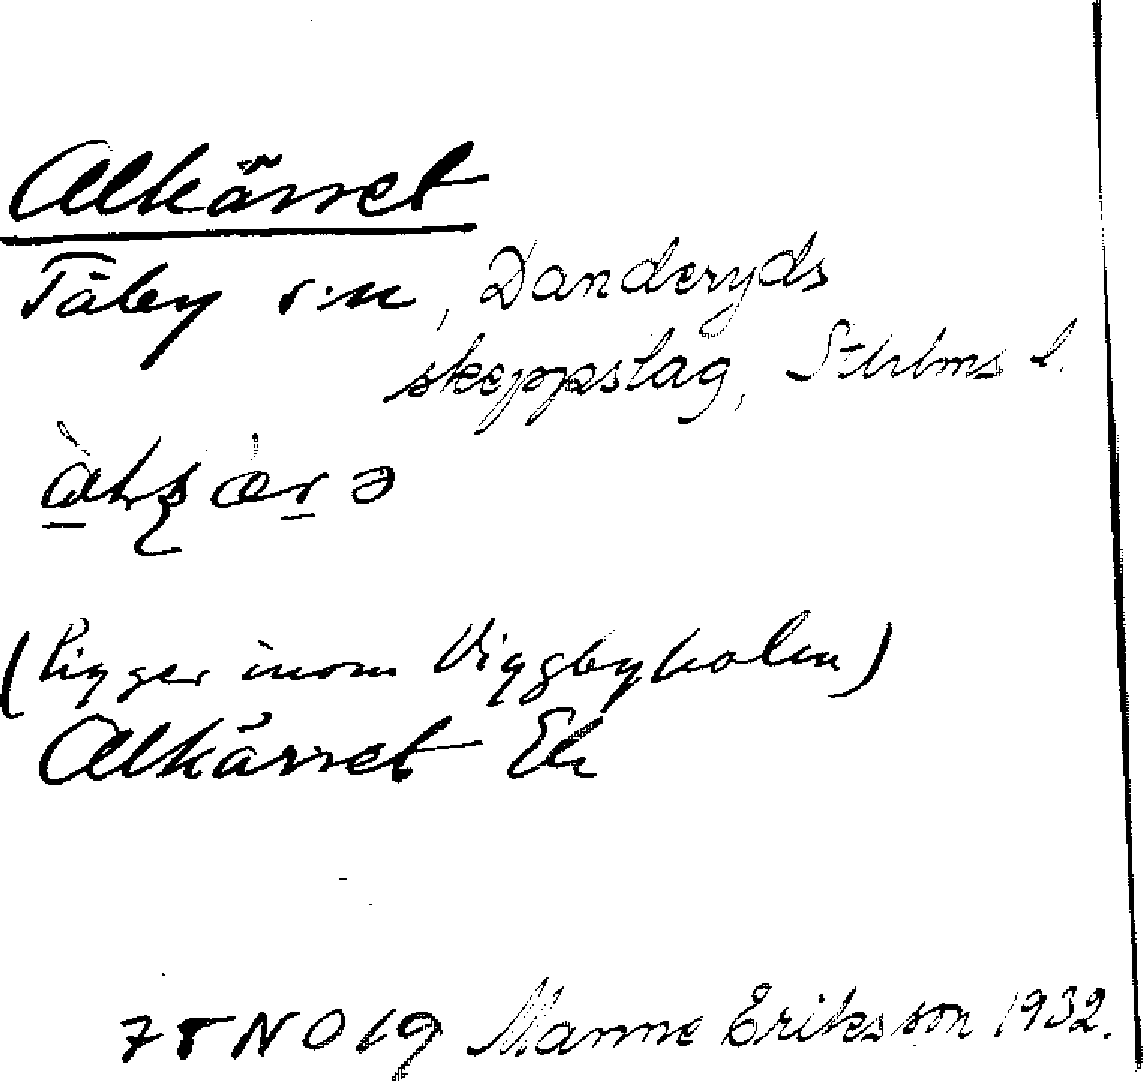 Alkärret
Täby s:n, Danderyds
skeppslag, Sthlms l.
(ligger inom Viggbyholm)
Alkärret Ek
7 NO 19 Manne Eriksson 1932.